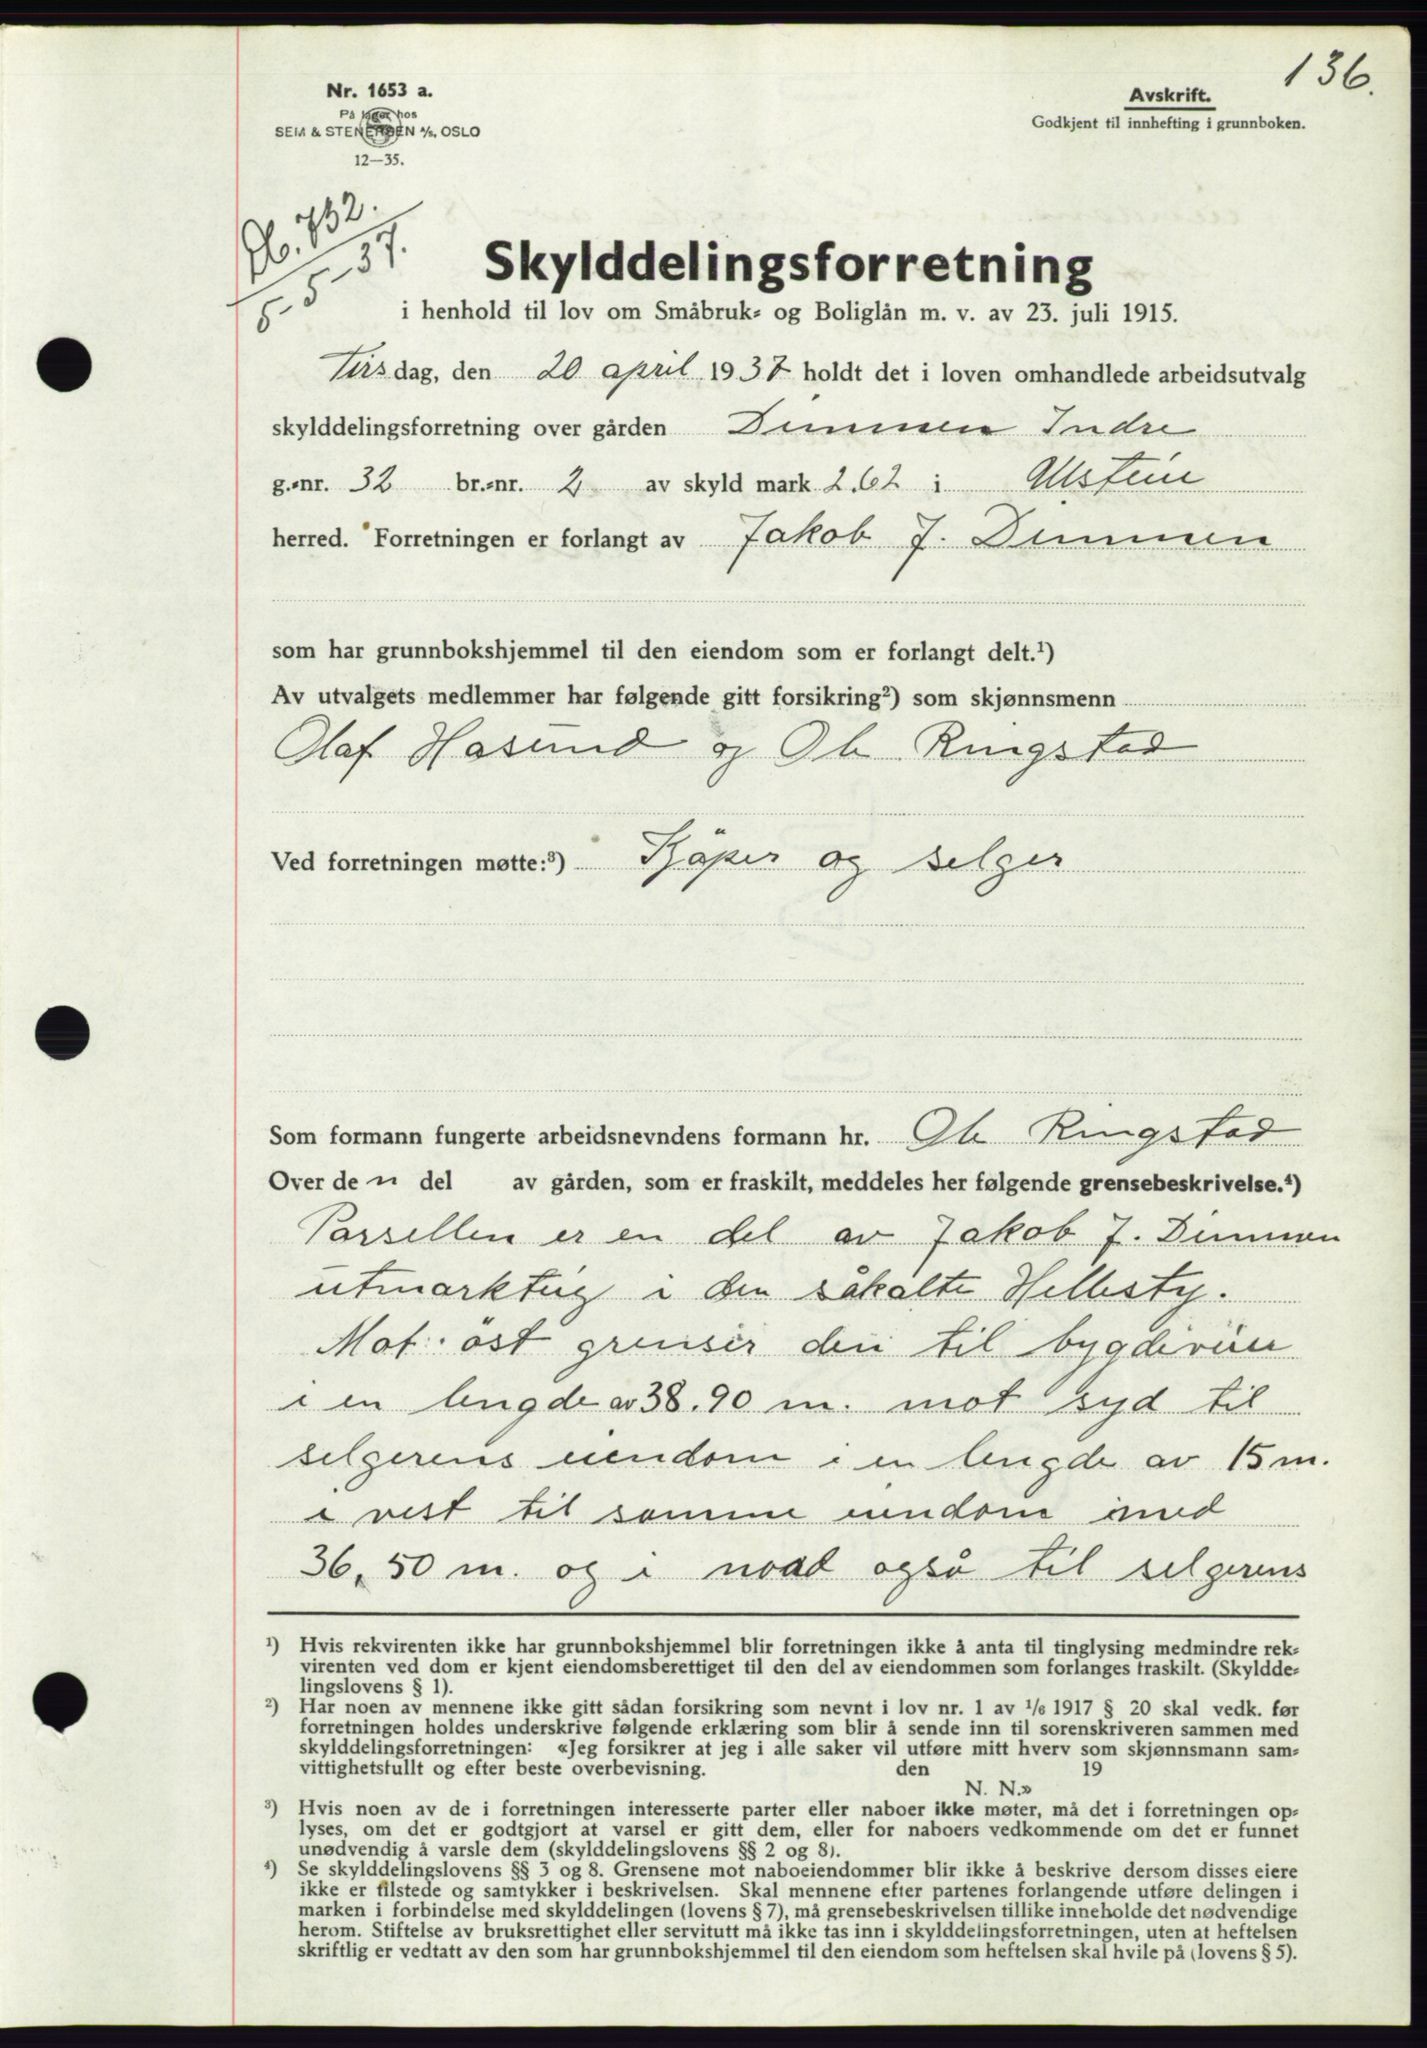 136.
Nr. 1653 a.
På lager hos
SEM & STENERSEN A/S, OSLO
12—35.
Avskrift.
Godkjent til innhefting i grunnboken.
Db. 732.
5-5-37.
Skylddelingsforretning
i henhold til lov om Småbruk- og Boliglån m. v. av 23. juli 1915.
Tirsdag, den 20 april 1937 holdt det i loven omhandlede arbeidsutvalg
skylddelingsforretning over gården Dimmen Indre
g.-nr. 32 br.-nr. 2 av skyld mark 2.62 i Ulstein
herred. Forretningen er forlangt av Jakob J. Dimmen
som har grunnbokshjemmel til den eiendom som er forlangt delt.¹)
Av utvalgets medlemmer har følgende gitt forsikring²) som skjønnsmenn
Olaf Hasund og Ole Ringstad
Ved forretningen møtte:³) Kjöper og selger
Som formann fungerte arbeidsnevndens formann hr. Ole Ringstad
Over den del av gården, som er fraskilt, meddeles her følgende grensebeskrivelse.⁴)
Parsellen er en del av Jakob J. Dimmen
utmarkteig i den såkalte Hellesty.
Mot öst grenser den til bygdeveien
i en lengde av 38.90 m. mot syd til
selgerens eiendom i en lengde av 15 m.
i vest til samme eiendom med
36,50 m. og i nord også til selgerens
¹) Hvis rekvirenten ikke har grunnbokshjemmel blir forretningen ikke å anta til tinglysing medmindre rek-
virenten ved dom er kjent eiendomsberettiget til den del av eiendommen som forlanges fraskilt. (Skyldde-
lingslovens § 1).
²) Har noen av mennene ikke gitt sådan forsikring som nevnt i lov nr. 1 av 1/6 1917 § 20 skal vedk. før
forretningen holdes underskrive følgende erklæring som blir å sende inn til sorenskriveren sammen med
skylddelingsforretningen: «Jeg forsikrer at jeg i alle saker vil utføre mitt hverv som skjønnsmann sam-
vittighetsfullt og efter beste overbevisning. den 19
N. N.»
³) Hvis noen av de i forretningen interesserte parter eller naboer ikke møter, må det i forretningen op-
lyses, om det er godtgjort at varsel er gitt dem, eller for naboers vedkommende om det er funnet
unødvendig å varsle dem (skylddelingslovens §§ 2 og 8).
⁴) Se skylddelingslovens §§ 3 og 8. Grensene mot naboeiendommer blir ikke å beskrive dersom disses eiere
ikke er tilstede og samtykker i beskrivelsen. Skal mennene efter partenes forlangende utføre delingen i
marken i forbindelse med skylddelingen (lovens § 7), må grensebeskrivelsen tillike inneholde det nødvendige
herom. Stiftelse av bruksrettighet eller servitutt må ikke tas inn i skylddelingsforretningen, uten at heftelsen
skriftlig er vedtatt av den som har grunnbokshjemmel til den eiendom som heftelsen skal hvile på (lovens § 5).